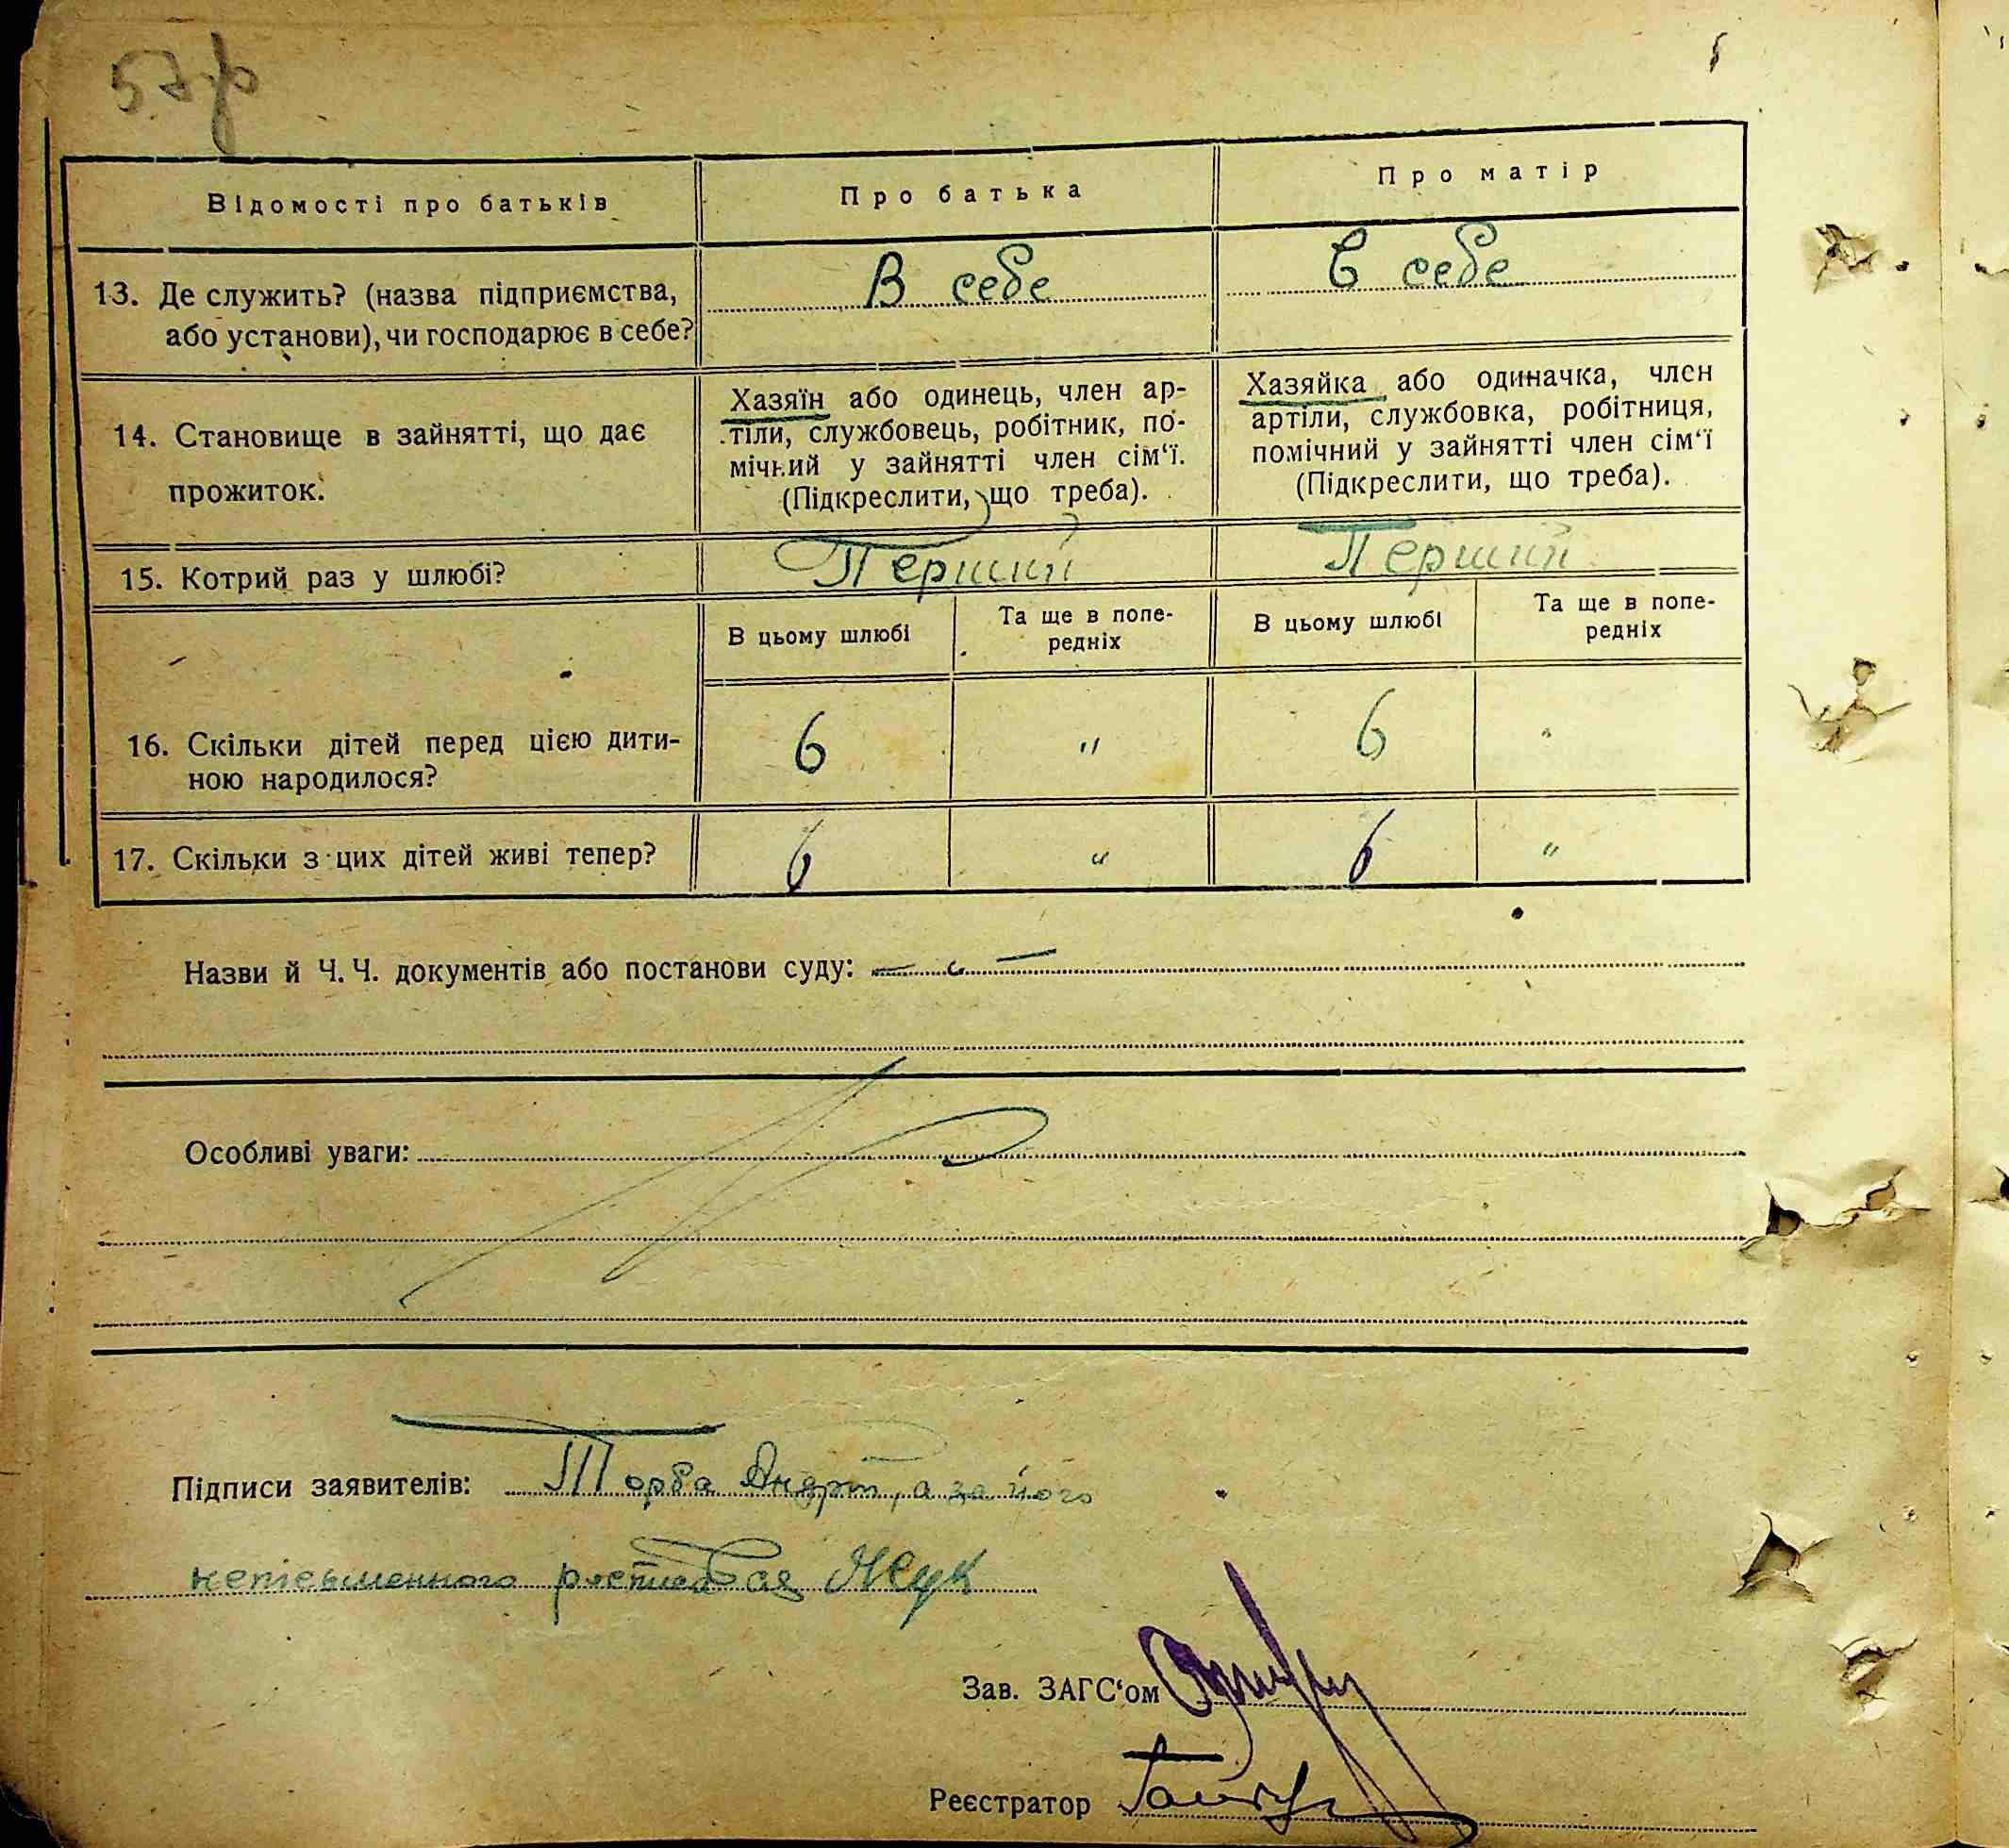 Відомості про батьків
Про батька
Про матір
13. Де служить? (назва підприємства,
або установи), чи господарює в себе?
В себе
В себе
14. Становище в зайнятті, що дає
прожиток.
Хазяїн або одинець, член ар-
тіли, службовець, робітник, по-
мічний у зайнятті член сім‘ї.
(Підкреслити, що треба).
Хазяйка або одиначка, член
артіли, службовка, робітниця,
помічний у зайнятті член сім‘ї
(Підкреслити, що треба).
15. Котрий раз у шлюбі?
Перший
Перший
В цьому шлюбі
Та ще в попе-
редніх
В цьому шлюбі
Та ще в попе-
редніх
16. Скільки дітей перед цією дити-
ною народилося?
6
"
6
"
17. Скільки з цих дітей живі тепер?
6
"
6
"
Назви й Ч. Ч. документів або постанови суду: — " —
Особливі уваги:
Підписи заявителів: Торба Андрій, а за його
неписьменного росписався Жук
Зав. ЗАГС‘ом
Реєстратор